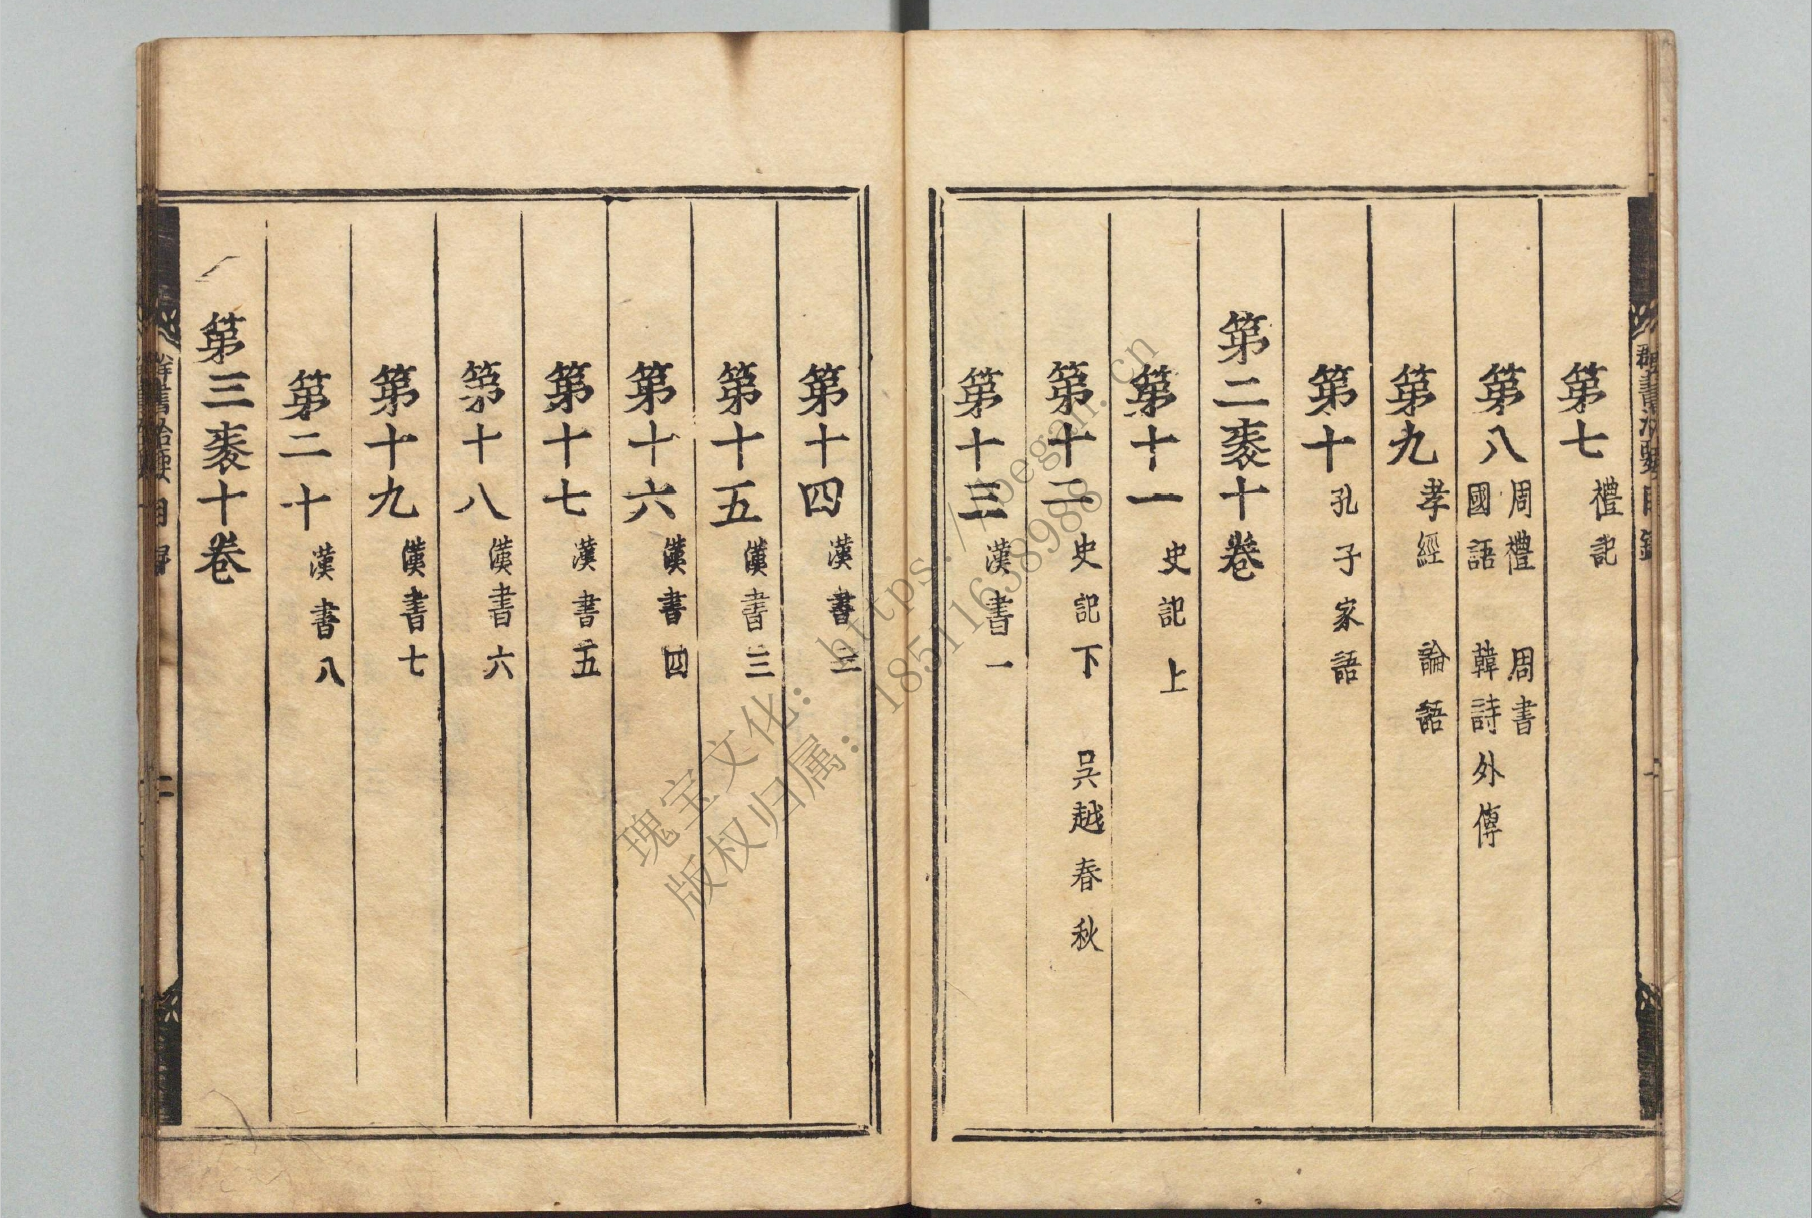 第七 禮記
第八 周禮 周書 國語 韓詩外傳
第九 孝經 論語
第十 孔子家語
第二袠十卷
第十一 史記上
第十二 史記下 吳越春秋
第十三 漢書一
第十四 漢書二
第十五 漢書三
第十六 漢書四
第十七 漢書五
第十八 漢書六
第十九 漢書七
第二十 漢書八
第三袠十卷
群書治要目錄
二
瑰宝文化:https://
版权归属:18511638988